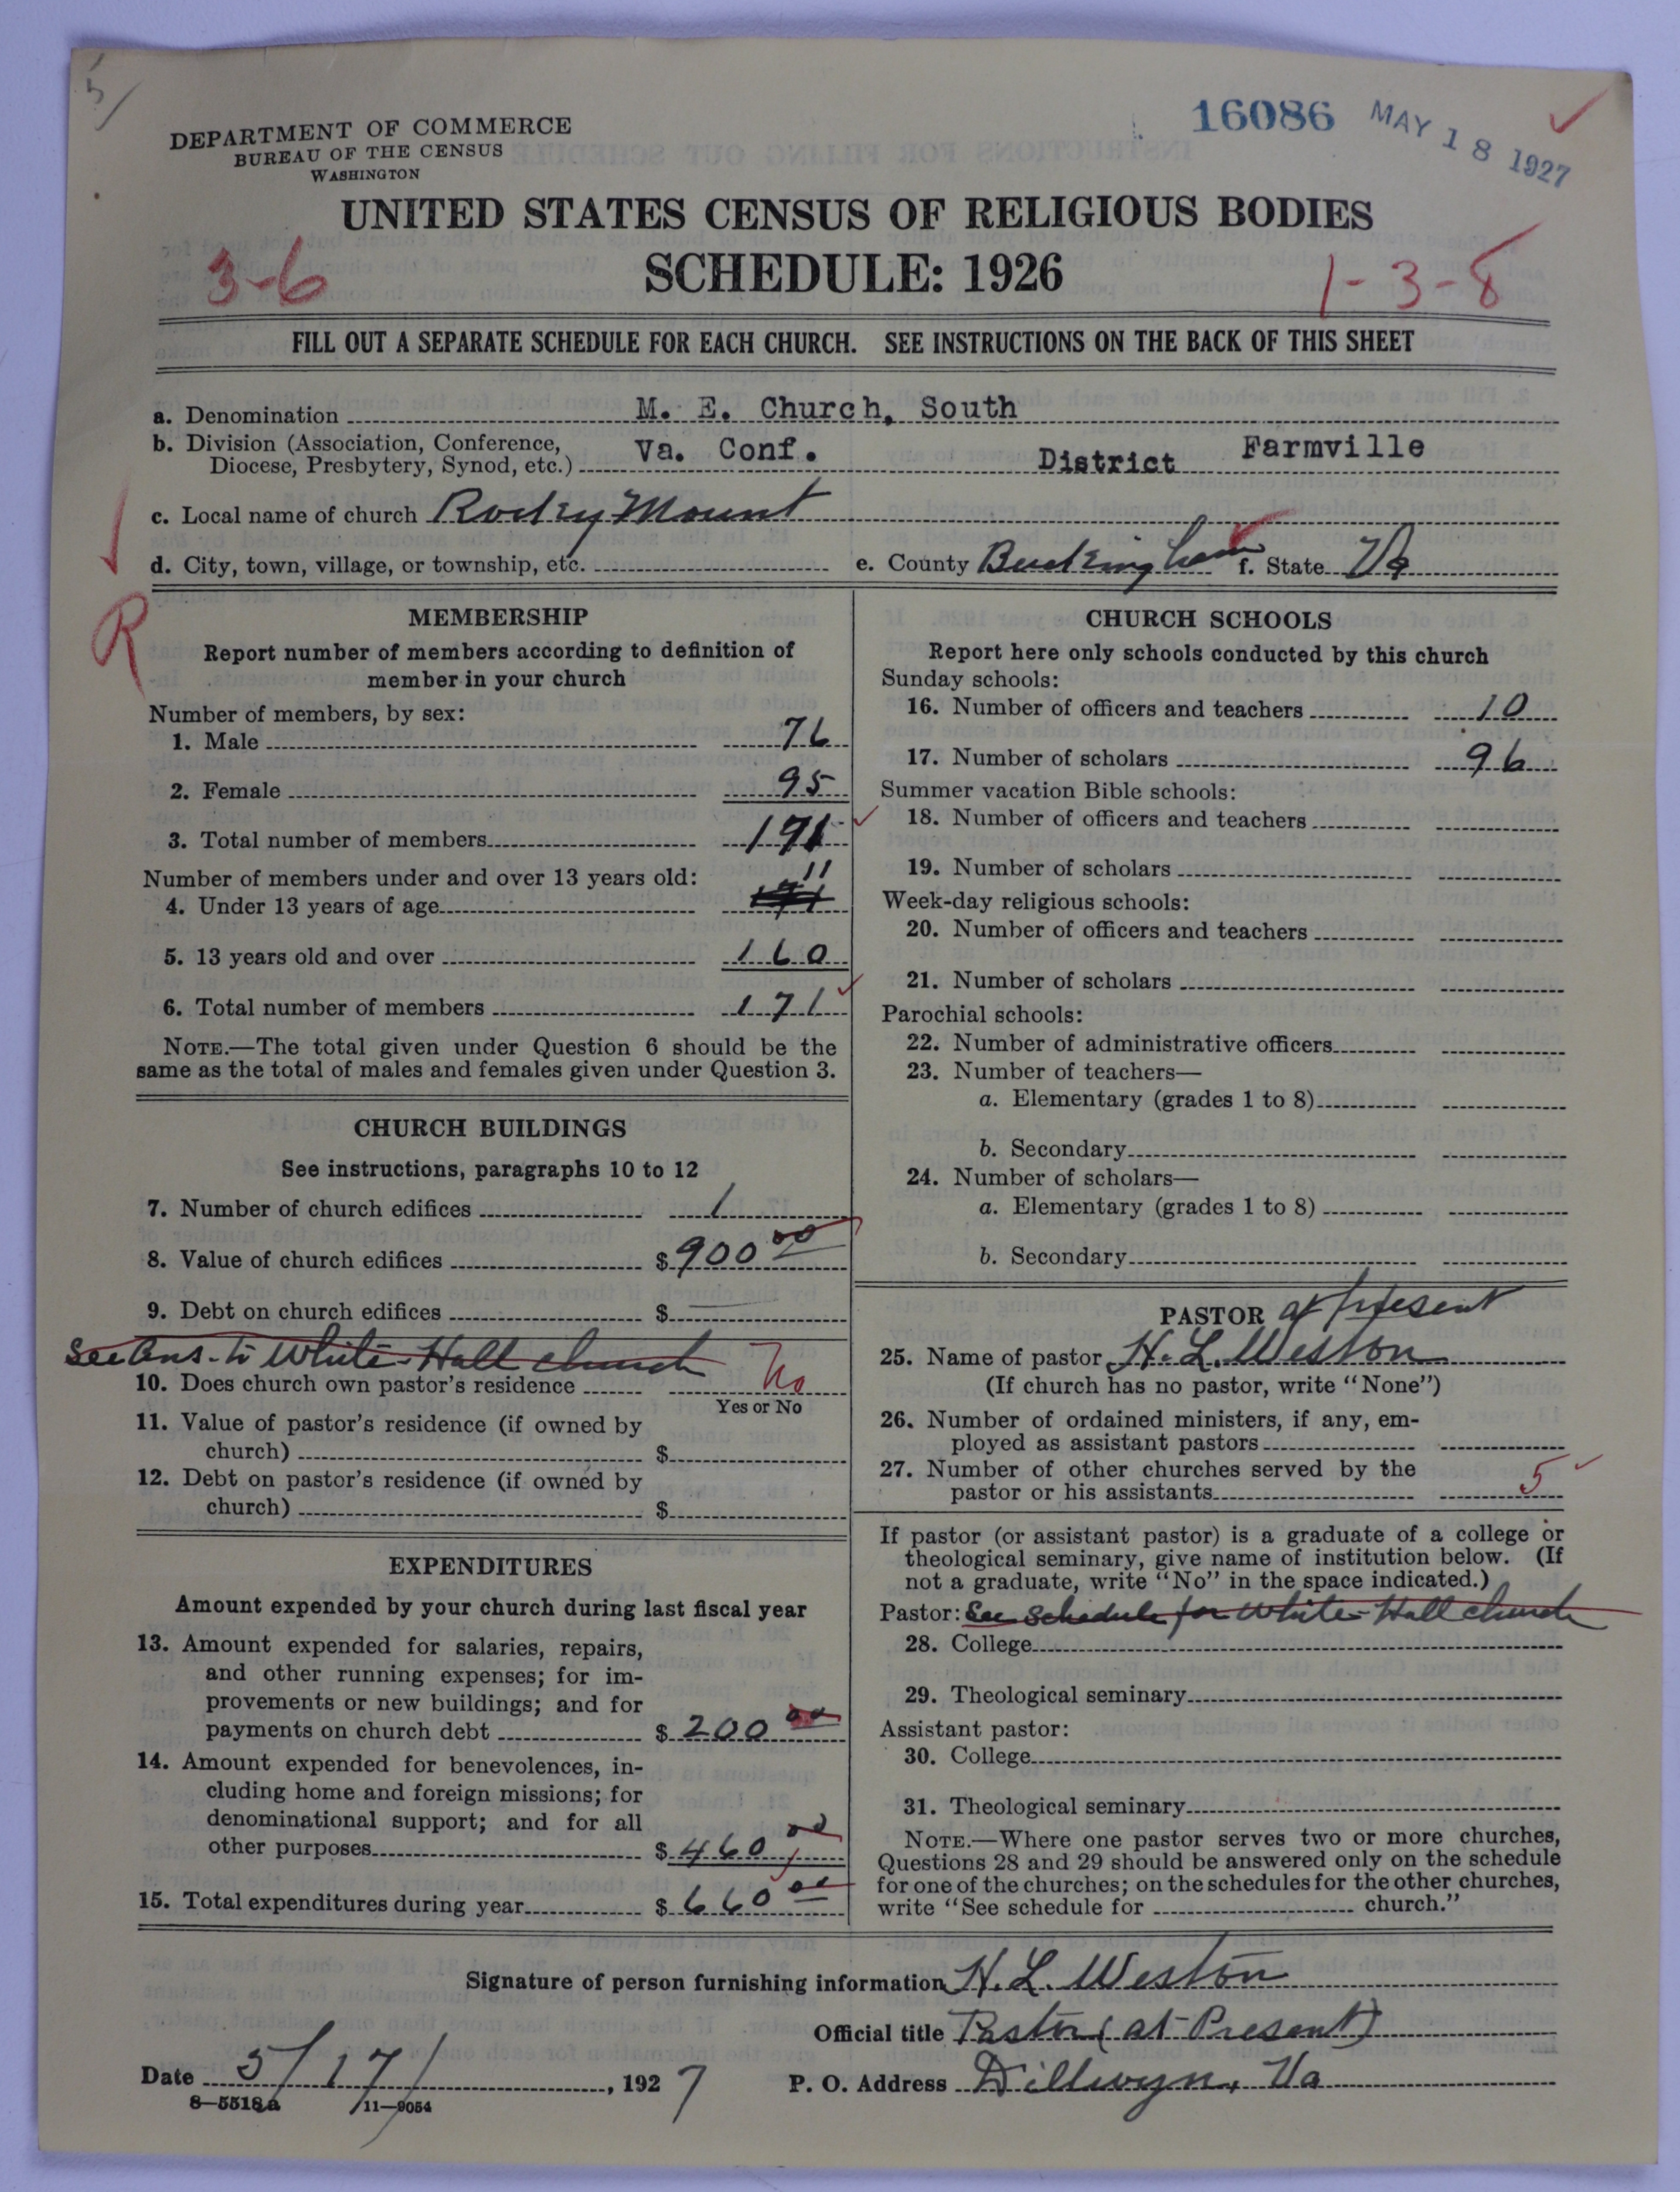 5/
16086 MAY 18 1927
DEPARTMENT OF COMMERCE
BUREAU OF THE CENSUS
WASHINGTON
UNITED STATES CENSUS OF RELIGIOUS BODIES
3-6 SCHEDULE: 1926 1-3-8
FILL OUT A SEPARATE SCHEDULE FOR EACH CHURCH. SEE INSTRUCTIONS ON THE BACK OF THIS SHEET
a. Denomination M. E. Church, South
b. Division (Association, Conference, Diocese, Presbytery, Synod, etc.) Va. Conf. District Farmville
c. Local name of church Rocky Mount
d. City, town, village, or township, etc. e. County Buckingham f. State Va
R
MEMBERSHIP
Report number of members according to definition of
member in your church
Number of members, by sex:
1. Male 76
2. Female 95
3. Total number of members 171
Number of members under and over 13 years old:
4. Under 13 years of age 11
5. 13 years old and over 160
6. Total number of members 171
NOTE.—The total given under Question 6 should be the
same as the total of males and females given under Question 3.
CHURCH BUILDINGS
See instructions, paragraphs 10 to 12
7. Number of church edifices 1
8. Value of church edifices $ 900 00
9. Debt on church edifices $
See Ans. to White-Hall church
10. Does church own pastor's residence No
Yes or No
11. Value of pastor's residence (if owned by
church) $
12. Debt on pastor's residence (if owned by
church) $
EXPENDITURES
Amount expended by your church during last fiscal year
13. Amount expended for salaries, repairs,
and other running expenses; for im-
provements or new buildings; and for
payments on church debt $ 200 00
14. Amount expended for benevolences, in-
cluding home and foreign missions; for
denominational support; and for all
other purposes $ 460 00
15. Total expenditures during year $ 660 00
CHURCH SCHOOLS
Report here only schools conducted by this church
Sunday schools:
16. Number of officers and teachers 10
17. Number of scholars 96
Summer vacation Bible schools:
18. Number of officers and teachers
19. Number of scholars
Week-day religious schools:
20. Number of officers and teachers
21. Number of scholars
Parochial schools:
22. Number of administrative officers
23. Number of teachers—
a. Elementary (grades 1 to 8)
b. Secondary
24. Number of scholars—
a. Elementary (grades 1 to 8)
b. Secondary
PASTOR at present
25. Name of pastor H. L. Weston
(If church has no pastor, write "None")
26. Number of ordained ministers, if any, em-
ployed as assistant pastors
27. Number of other churches served by the
pastor or his assistants 5
If pastor (or assistant pastor) is a graduate of a college or
theological seminary, give name of institution below. (If
not a graduate, write "No" in the space indicated.)
Pastor: See Schedule for White-Hall church
28. College
29. Theological seminary
Assistant pastor:
30. College
31. Theological seminary
NOTE.—Where one pastor serves two or more churches,
Questions 28 and 29 should be answered only on the schedule
for one of the churches; on the schedules for the other churches,
write "See schedule for church."
Signature of person furnishing information H. L. Weston
Official title Pastor (at Present)
Date 5/17/, 1927 P. O. Address Dillwyn, Va
8—5518a 11—9054